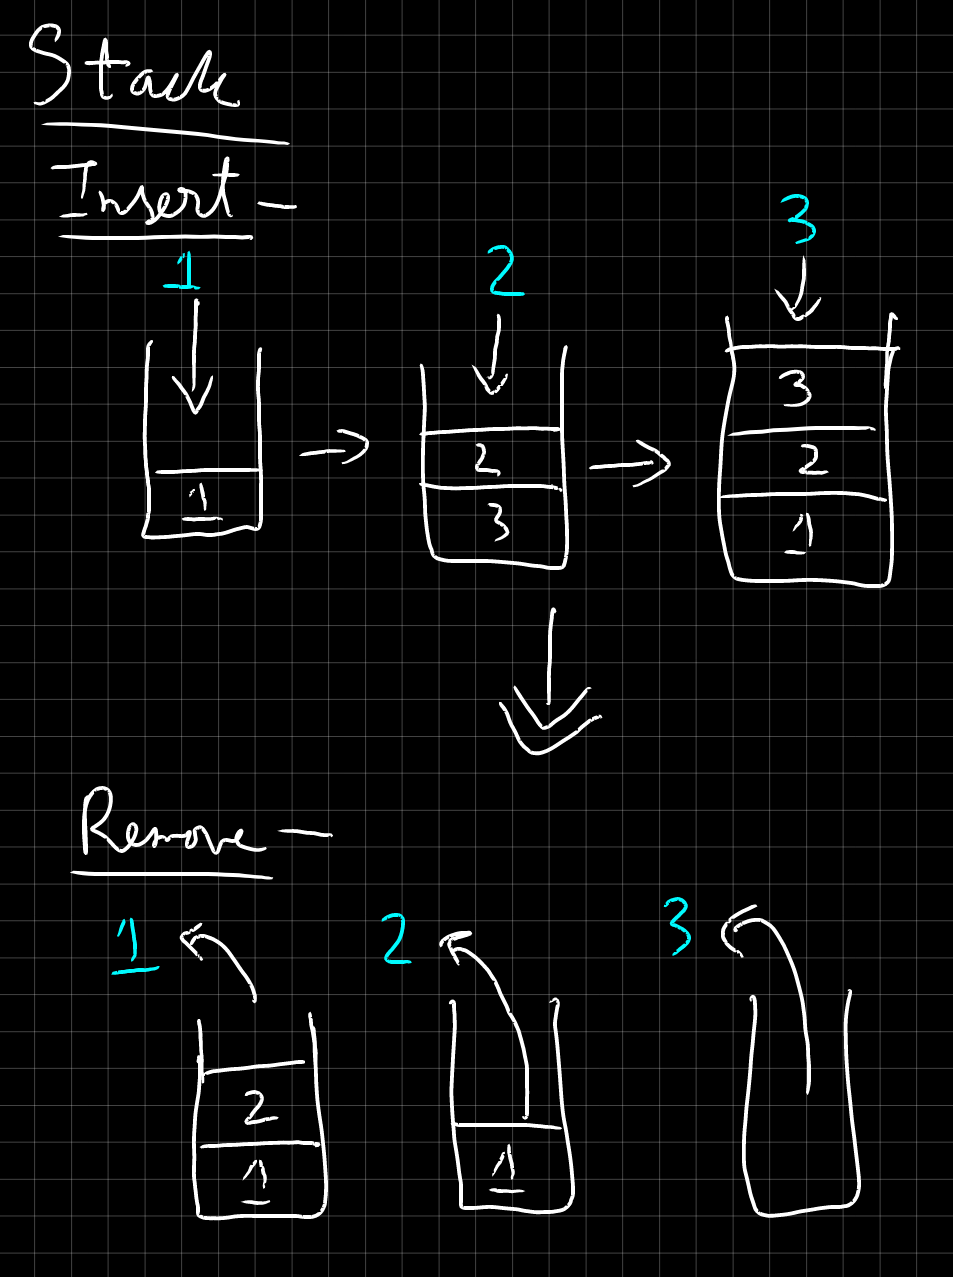 Stack
Insert -
1
2
3
1
2
3
3
2
1
Remove -
1
2
3
2
1
1